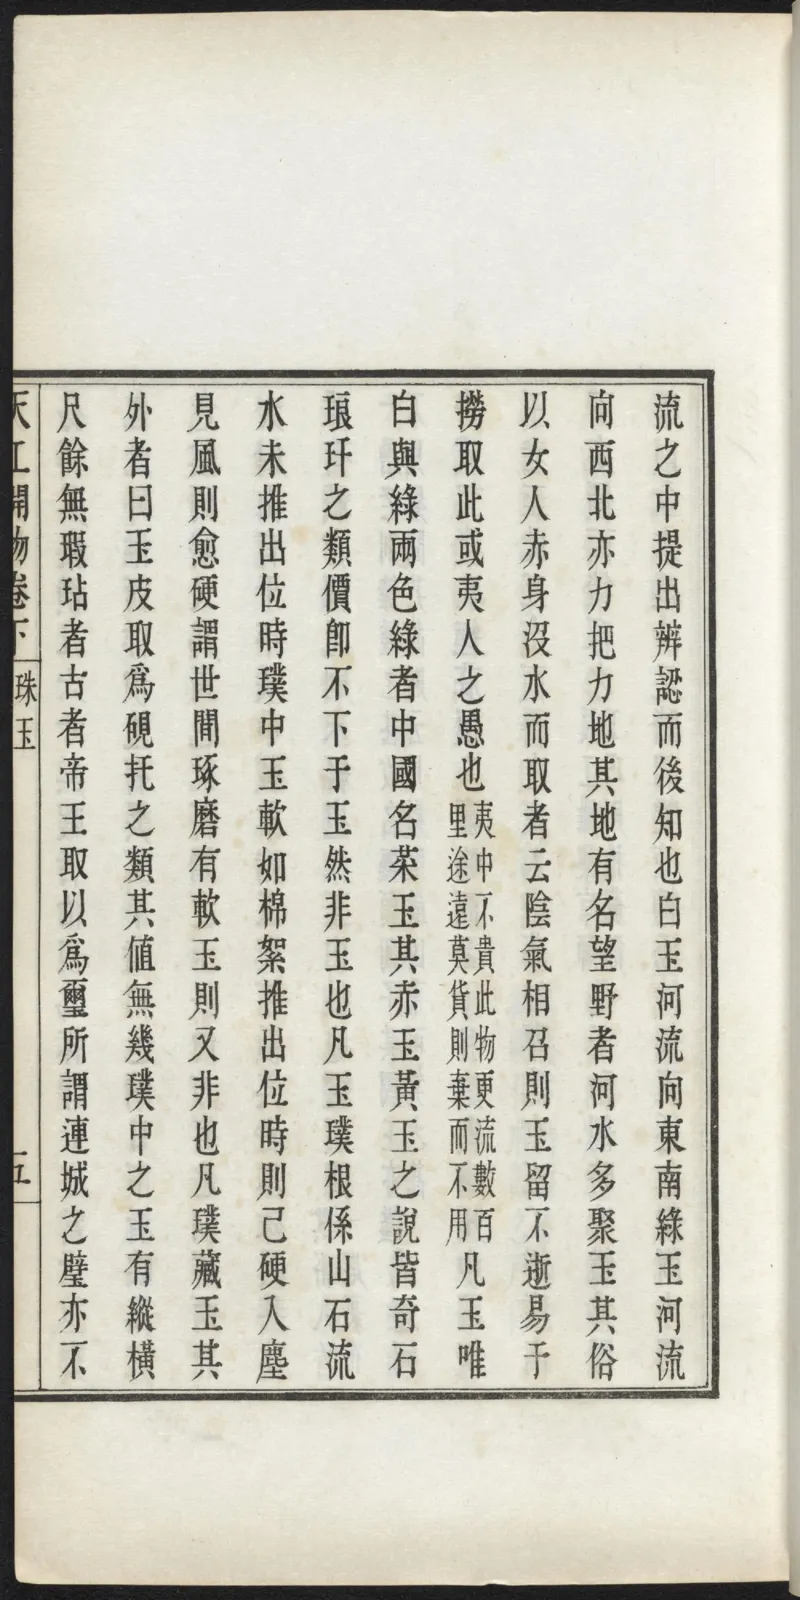 流之中提出辨認而後知也白玉河流向東南綠玉河流
向西北亦力把力地其地有名望野者河水多聚玉其俗
以女人赤身沒水而取者云陰氣相召則玉留不逝易于
撈取此或夷人之愚也夷中不貴此物更流數百里途遠莫貨則棄而不用凡玉唯
白與綠兩色綠者中國名菜玉其赤玉黃玉之說皆奇石
琅玕之類價卽不下于玉然非玉也凡玉璞根係山石流
水未推出位時璞中玉軟如棉絮推出位時則已硬入塵
見風則愈硬謂世間琢磨有軟玉則又非也凡璞藏玉其
外者曰玉皮取爲硯托之類其值無幾璞中之玉有縱橫
尺餘無瑕玷者古者帝王取以爲璽所謂連城之璧亦不
天工開物卷下 珠玉 五